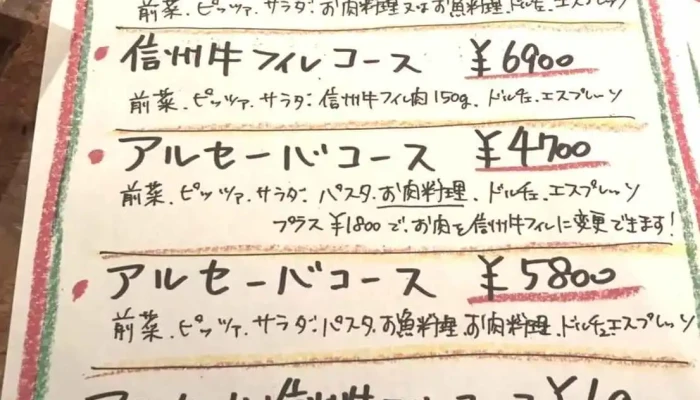 前菜.ピッツァ.サラダ:お肉料理又はお魚料理.ドルチェ.エスプレッソ
信州牛フィレコース ¥6900
前菜.ピッツァ.サラダ:信州牛フィレ肉150g.ドルチェ.エスプレッソ
アルセーバコース ¥4700
前菜.ピッツァ.サラダ:パスタ.お肉料理.ドルチェ.エスプレッソ
プラス¥1800で.お肉を信州牛フィレに変更できます!
アルセーバコース ¥5800
前菜.ピッツァ.サラダ:パスタ.お魚料理.お肉料理.ドルチェ.エスプレッソ